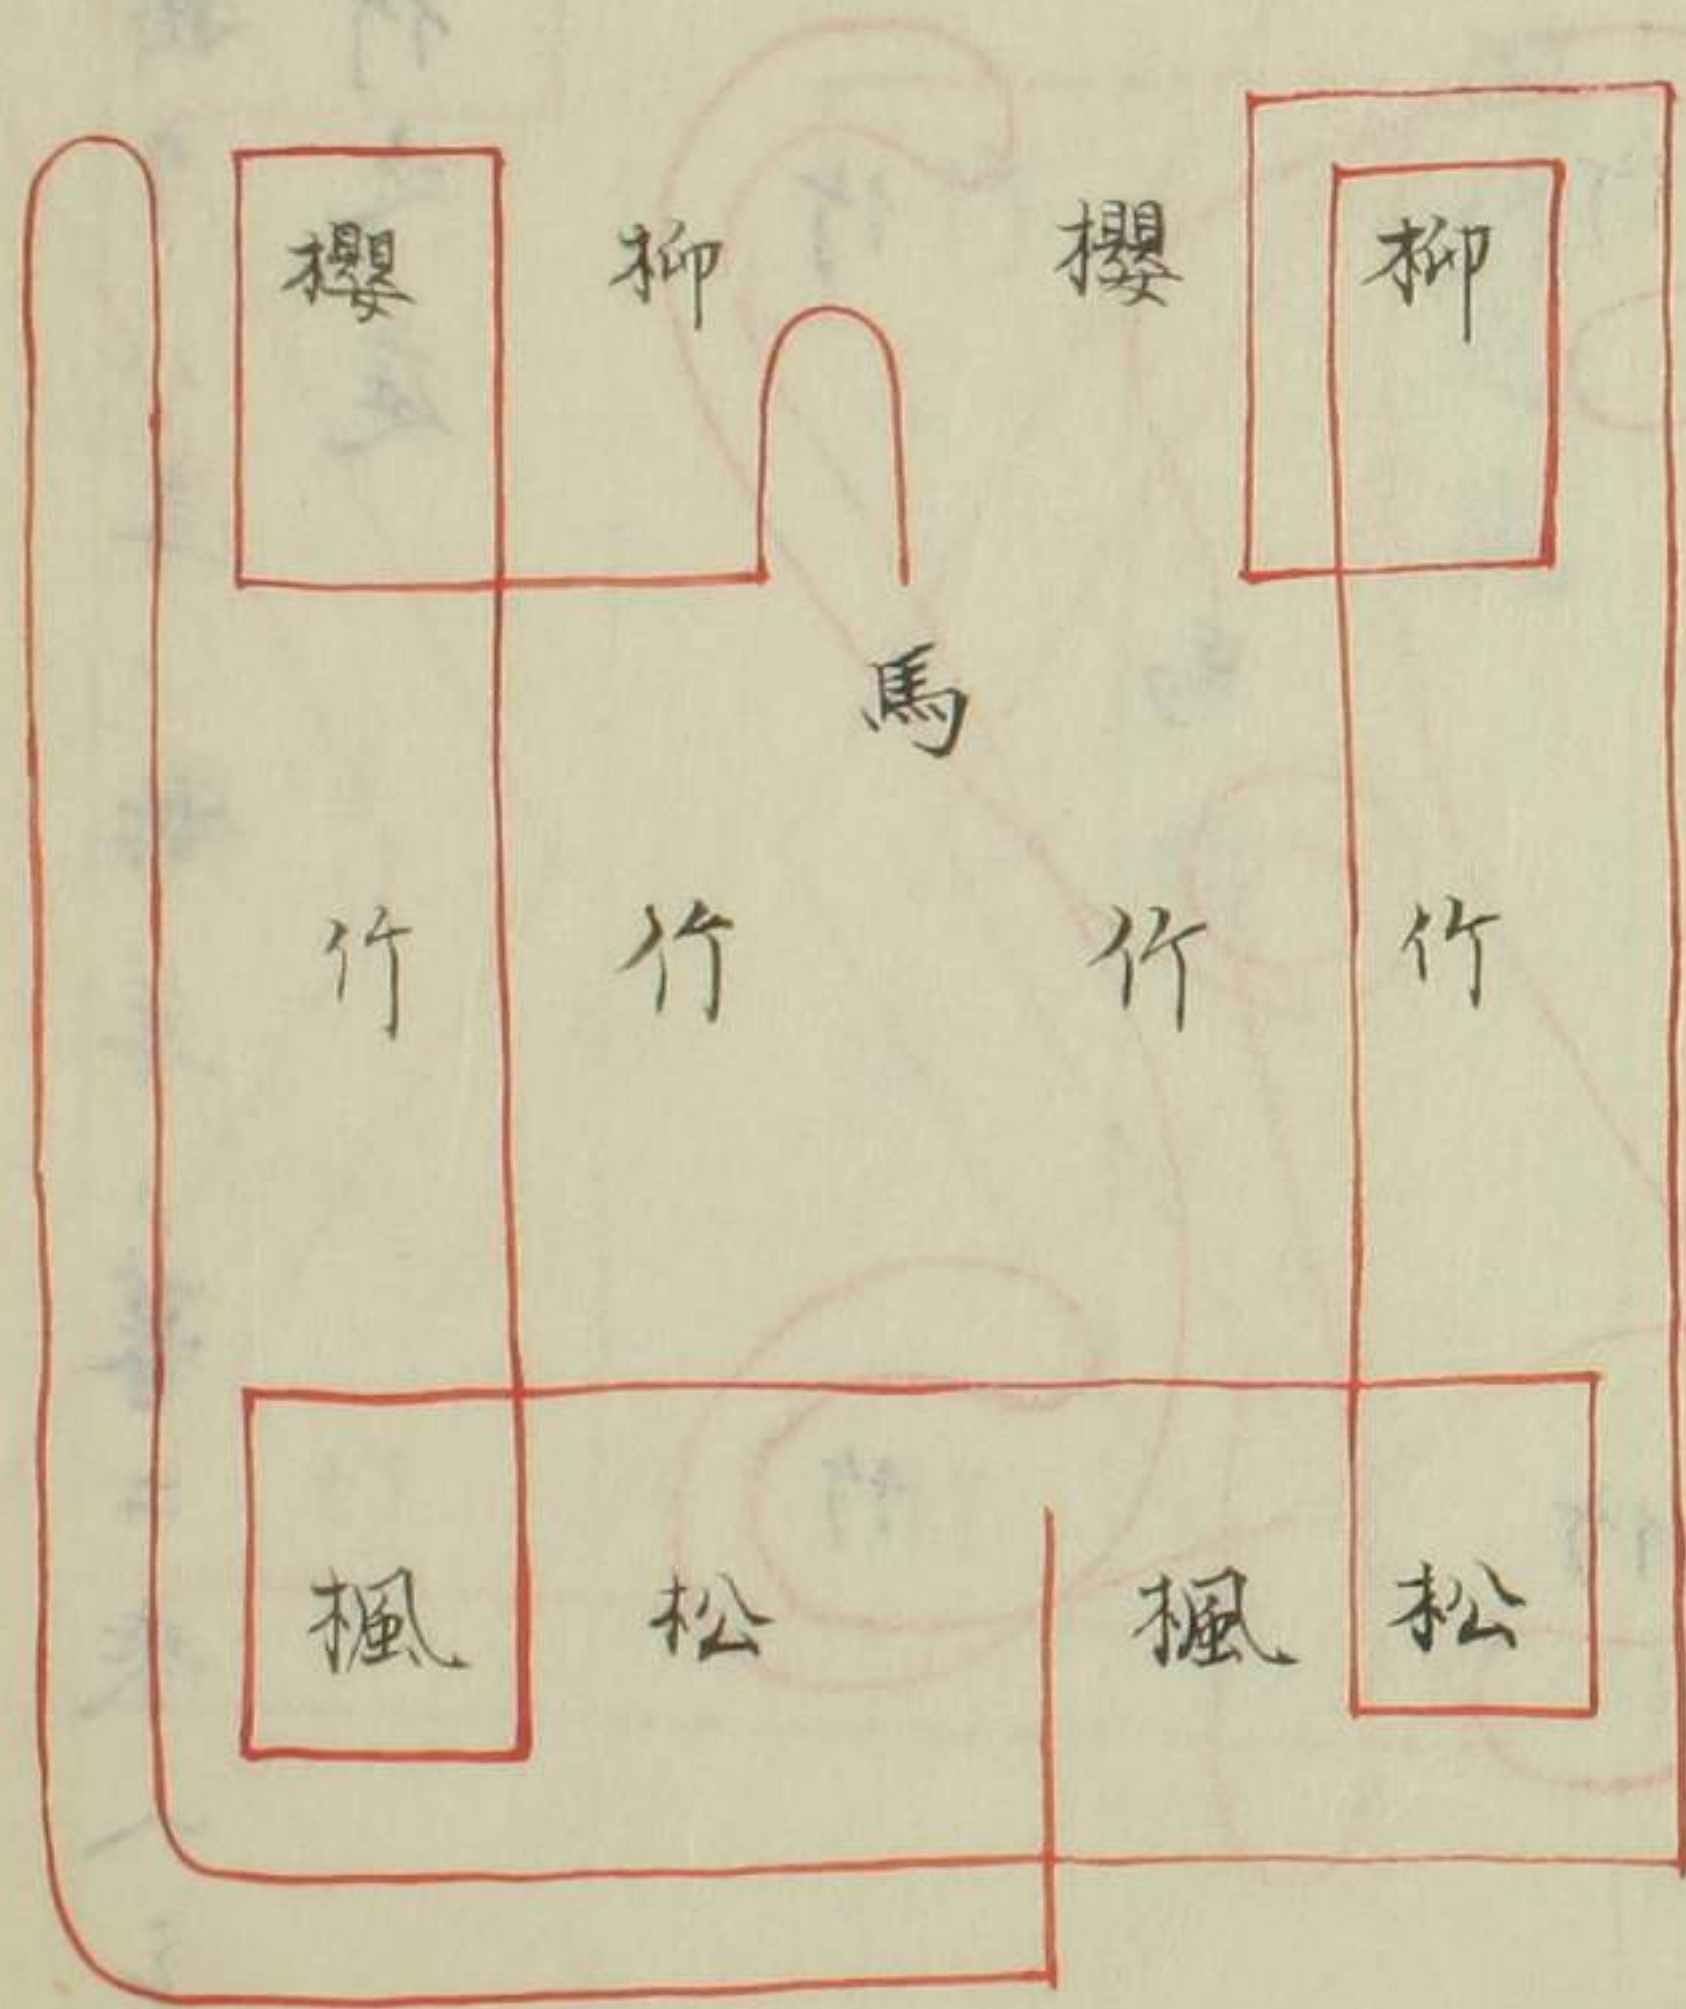 櫻 柳 櫻 柳
馬
竹 竹 竹 竹
楓 松 楓 松